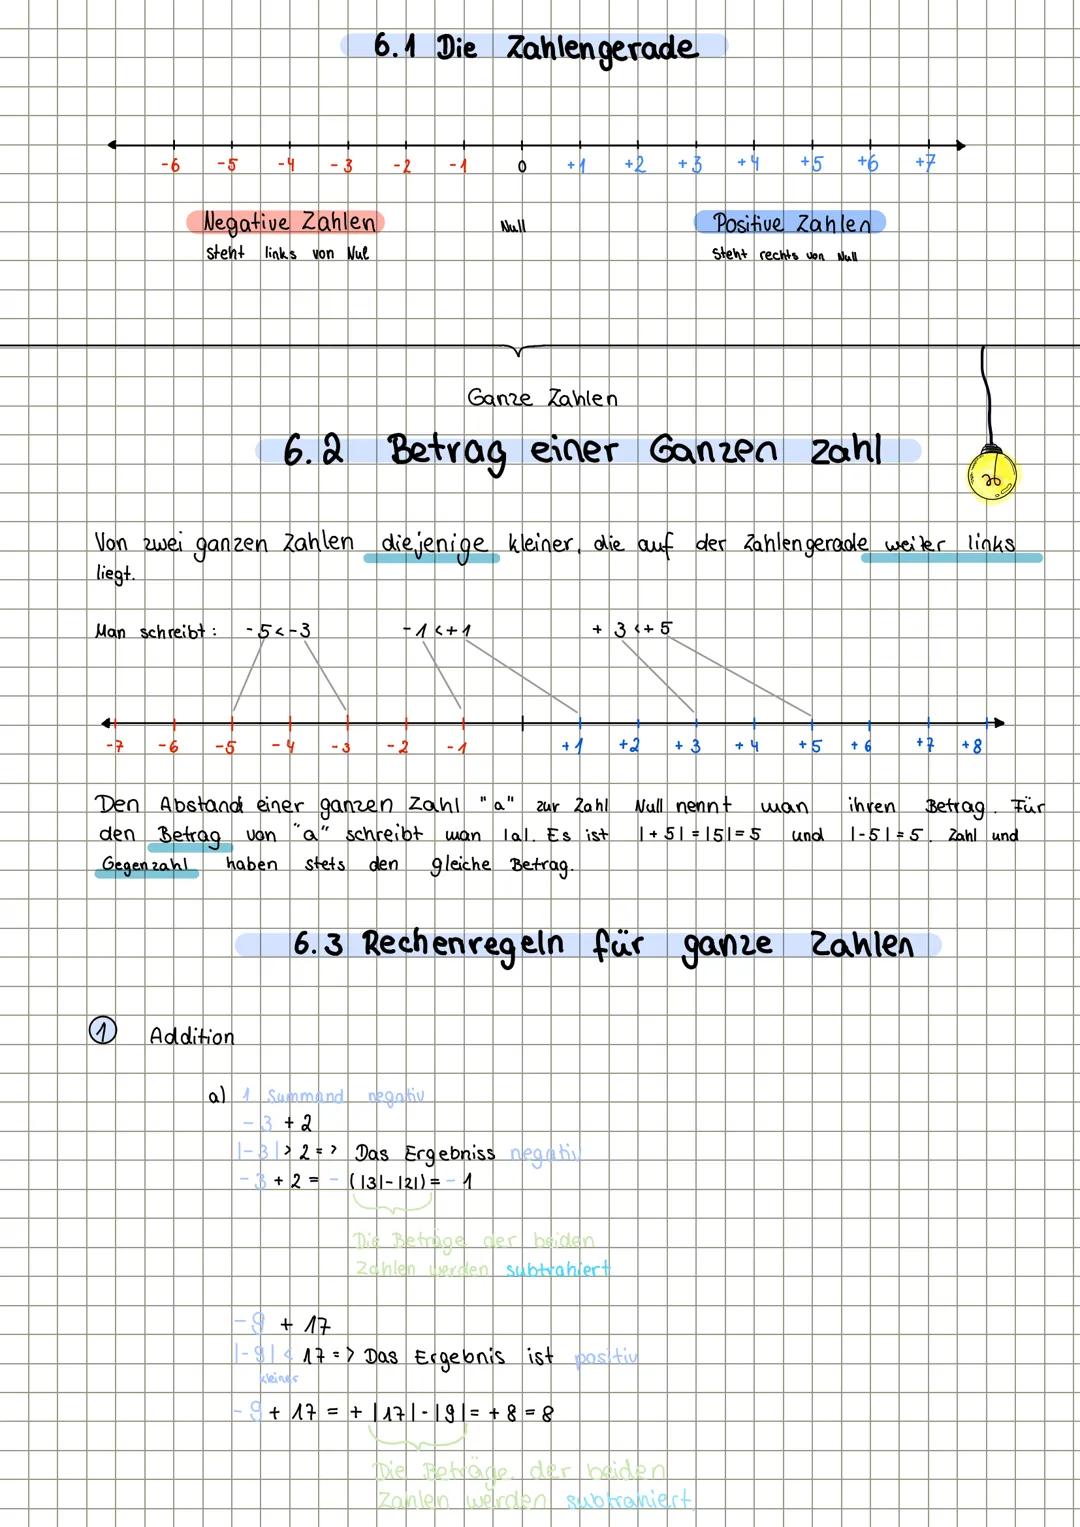 6.1 Die Zahlengerade
-6 -5 -4 -3 -2 -1 0 +1 +2 +3 +4 +5 +6 +7
Negative Zahlen Null Positive Zahlen
steht links von Nul Steht rechts von Null
Ganze Zahlen
6.2 Betrag einer Ganzen zahl
Von zwei ganzen Zahlen diejenige kleiner, die auf der Zahlengerade weiter links
liegt.
Man schreibt: -5<-3 -1<+1 +3<+5
-7 -6 -5 -4 -3 -2 -1 +1 +2 +3 +4 +5 +6 +7 +8
Den Abstand einer ganzen Zahl "a" zur Zahl Null nennt man ihren Betrag. Für
den Betrag von "a" schreibt man |a|. Es ist |+5|=|5|=5 und |-5|=5. Zahl und
Gegenzahl haben stets den gleiche Betrag.
6.3 Rechenregeln für ganze Zahlen
1 Addition
a) 1 Summand negativ
-3 +2
|-3|>2 => Das Ergebniss negativ
-3+2 = - (|3|-|2|) = -1
Die Beträge der beiden
Zahlen werden subtrahiert
-9 + 17
|-9| < 17 => Das Ergebnis ist positiv
kleiner
-9 + 17 = + |17|-|9| = +8 = 8
Die Beträge der beiden
Zahlen werden subtrahiert